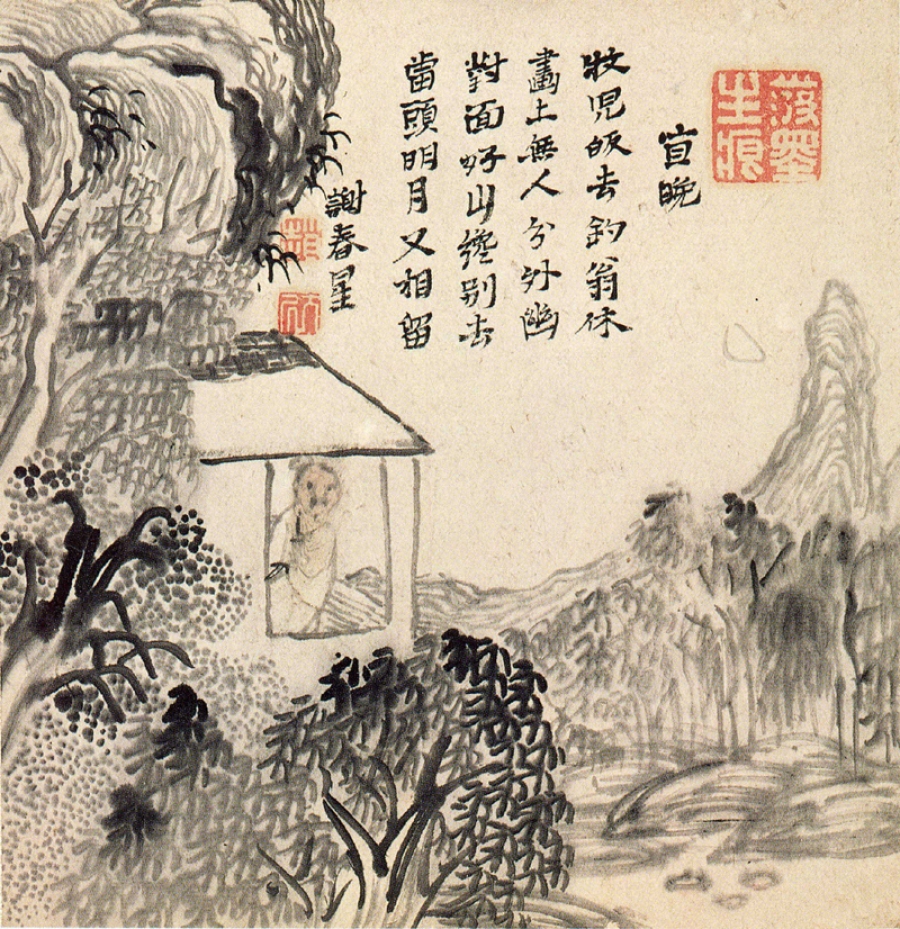 潑墨生痕
宜晚
牧児皈去釣翁休
畫上無人分外幽
對面好山纔別去
當頭明月又相留
謝春星
趙